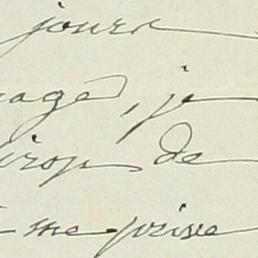 jours
nages, je
sirop de
me prive